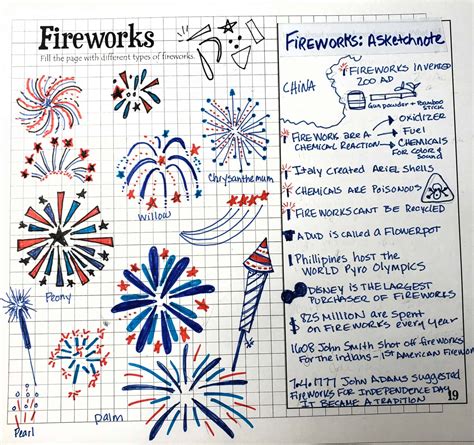 Fireworks
Fill the page with different types of fireworks.
Chrysanthemum
Willow
Peony
Pearl
Palm
FIREWORKS: A SKETCHNOTE
CHINA
FIREWORKS INVENTED
200 AD
GUN POWDER + BAMBOO
STICK
FIREWORK ARE A
CHEMICAL REACTION
OXIDIZER
FUEL
CHEMICALS
FOR COLOR &
SOUND
ITALY CREATED ARIEL SHELLS
CHEMICALS ARE POISONOUS
FIREWORKS CANT BE RECYCLED
A DUD IS CALLED A FLOWERPOT
PHILLIPINES HOST THE
WORLD PYRO OLYMPICS
DISNEY IS THE LARGEST
PURCHASER OF FIREWORKS
$825 MILLION ARE SPENT
ON FIREWORKS EVERY YEAR
1608 JOHN SMITH SHOT OFF FIREWORKS
FOR THE INDIANS - 1ST AMERICAN FIREWORK
1777 JOHN ADAMS SUGGESTED
FIREWORKS FOR INDEPENDENCE DAY
IT BECAME A TRADITION
19